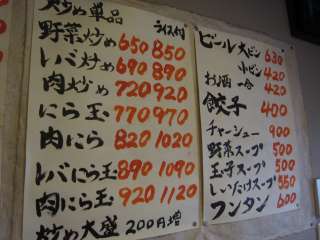 炒め単品 ライス付
野菜炒め 650 850
レバ炒め 690 890
肉炒め 720 920
にら玉 770 970
肉にら 820 1020
レバにら玉 890 1090
肉にら玉 920 1120
炒め大盛 200円増
ビール 大ビン 630
小ビン 420
お酒 一合 420
餃子 400
チャーシュー 900
野菜スープ 500
玉子スープ 500
しいたけスープ 550
フンタン 600